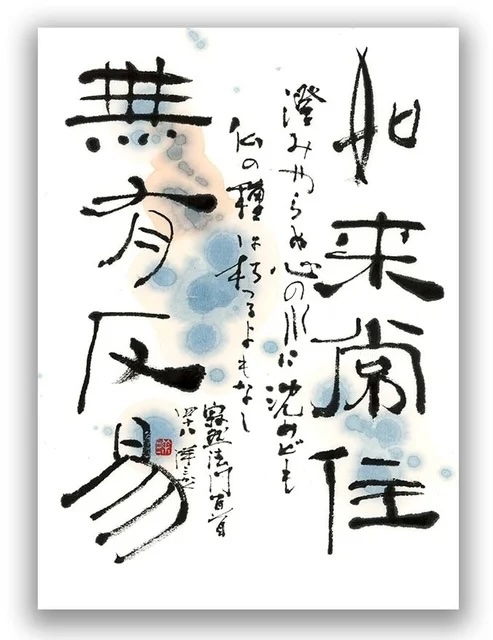 如来常住
澄みやらぬ心の水に沈めども
仏の種は朽つるよもなし
寂然法門百首
四十八
無有反易